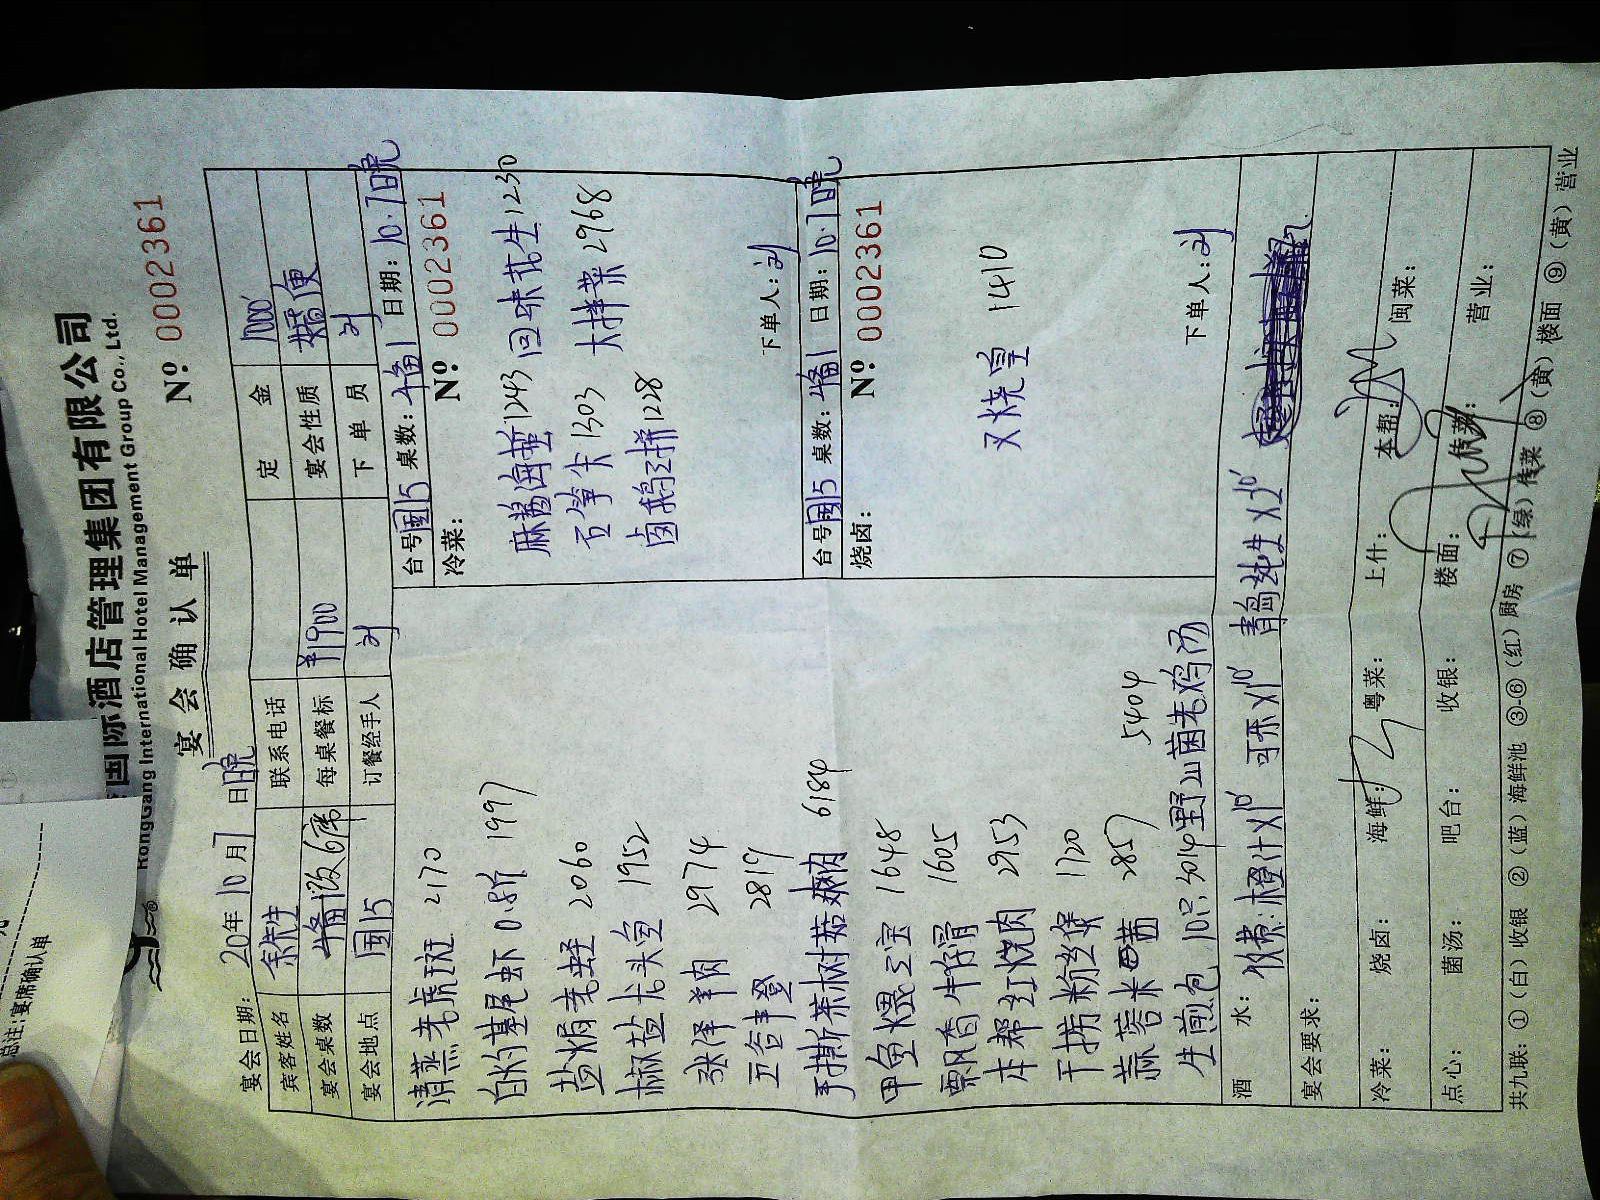 国际酒店管理集团有限公司
RongGang International Hotel Management Group Co., Ltd.
宴会确认单
Nº 0002361
宴会日期: 20 年 10 月 7 日晚
宾客姓名 余先生 联系电话 定金 1000
宴会桌数 备1改6席 每桌餐标 ¥1900 宴会性质 便
宴会地点 国15 订餐经手人 刘 下单员 刘
清蒸老虎斑 2170
白灼基尾虾 0.8斤 1997
盐焗老 2060
椒盐龙头鱼 1952
张泽羊肉 2974
五谷丰登 2819
手撕茶树菇爽肉 6184
甲鱼煨三宝 1648
飘香牛仔骨 1605
本帮红烧肉 2953
干捞粉丝煲 1720
蒜蓉米苋 2857
5404
生煎包10只 3014 野山菌老鸡汤
台号国15 桌数: 备1 日期: 10.7日晚
冷菜: Nº 0002361
麻酱海蜇 1243 回味花生 1230
石笋尖 1303 大拌菜 2968
卤鹅三拼 1228
下单人: 刘
台号国15 桌数: 备1 日期: 10.7日晚
烧卤: Nº 0002361
叉烧皇 1410
下单人: 刘
酒水: 伙费: 橙汁x1 可乐x1 青岛纯生x2
宴会要求:
冷菜: 烧卤: 海鲜: 粤菜: 上什: 本帮: 闽菜:
点心: 菌汤: 吧台: 收银: 楼面: 传菜: 营业:
共九联: ①(白)收银 ②(蓝)海鲜池 ③-⑥(红)厨房 ⑦(绿)传菜 ⑧(黄)楼面 ⑨(黄)营业
总注: 宴席确认单